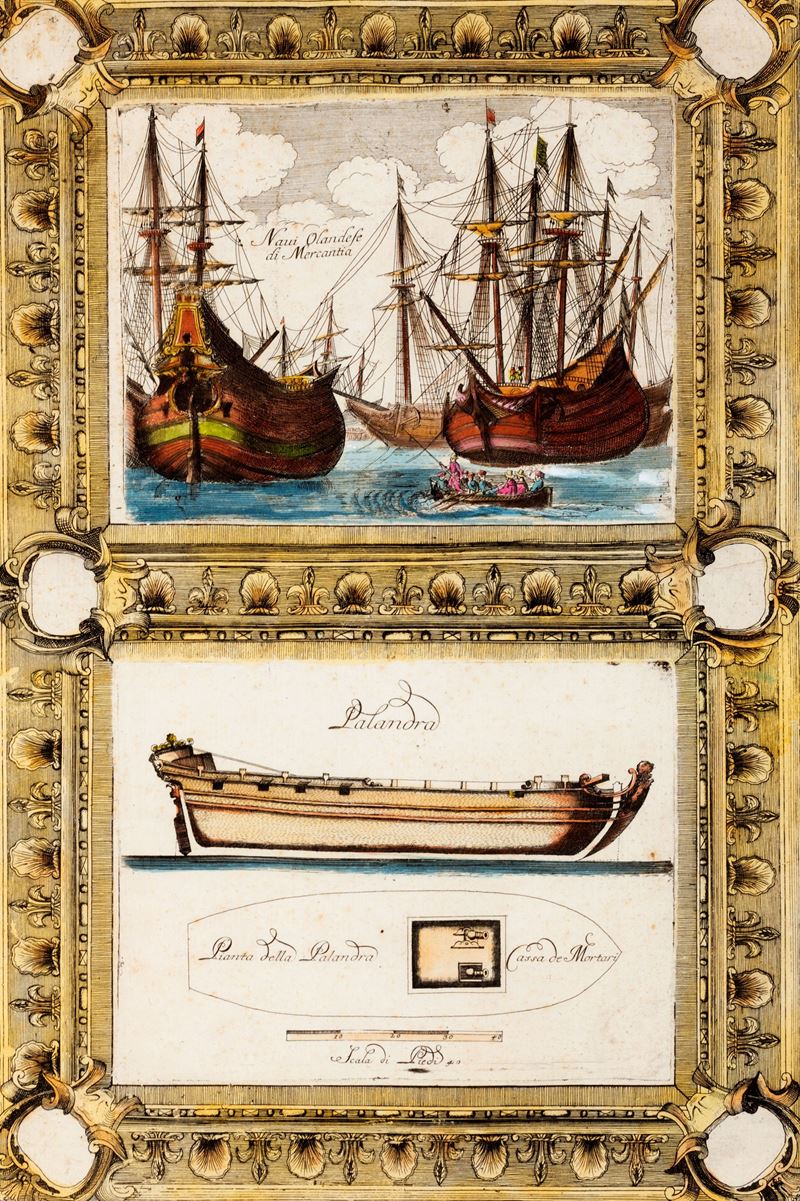 Naui Olandese
di Mercantia
Palandra
Pianta della Palandra
Cassa de Mortari
10 20 30 40
Scala di Piedi 40